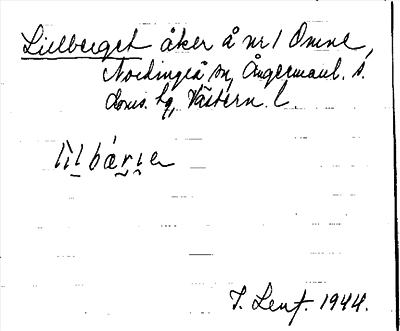 Lillberget åker å nr 1 Omne,
Nordingrå sn, Ångermanl. s.
doms. hg, Västern. l.
lìlbárɩen
T. Lenf. 1944.